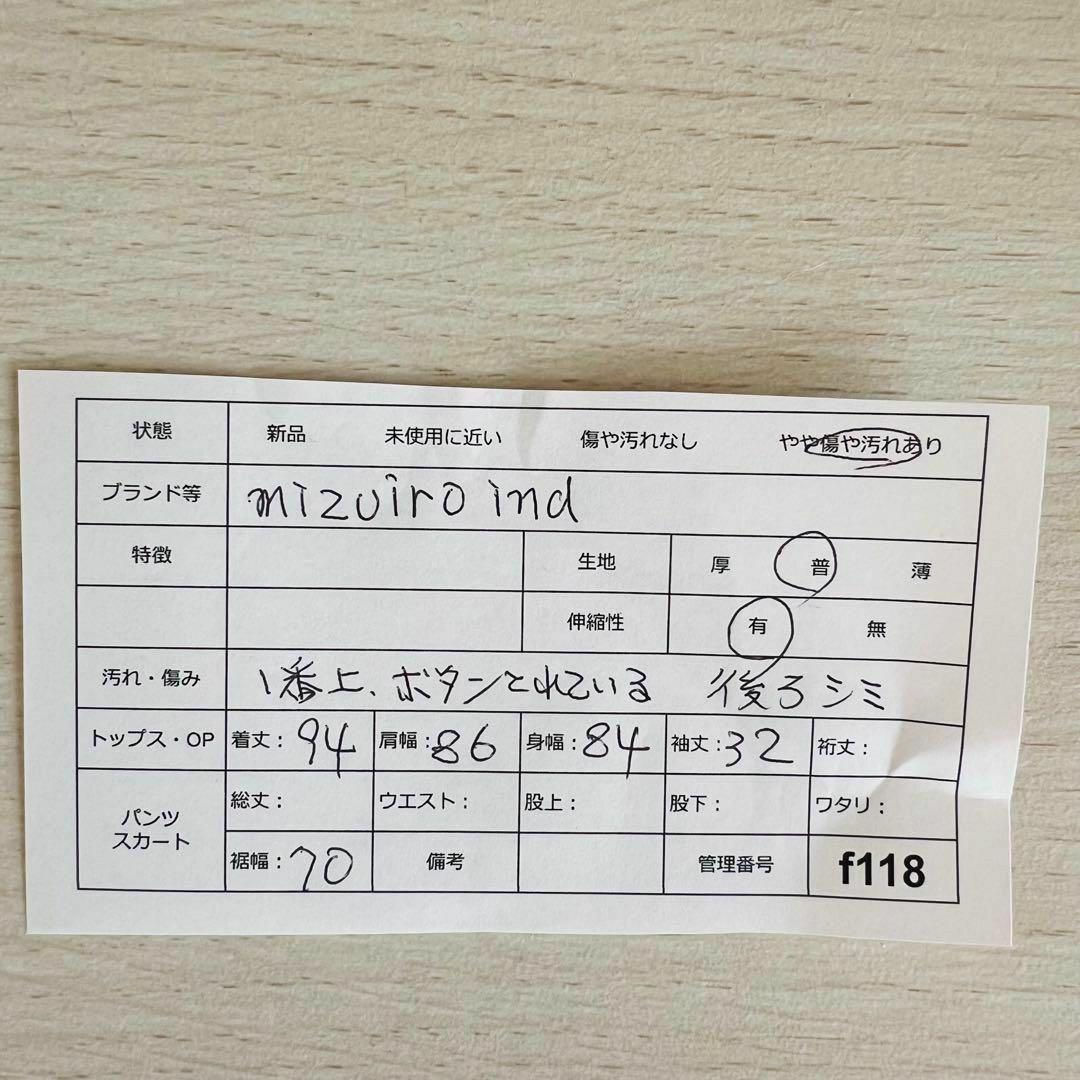 状態 新品 未使用に近い 傷や汚れなし やや傷や汚れあり
ブランド等 mizuiro ind
特徴 生地 厚 普 薄
伸縮性 有 無
汚れ・傷み 1番上、ボタンとれている 後ろシミ
トップス・OP 着丈：94 肩幅：86 身幅：84 袖丈：32 裄丈：
パンツ
スカート
総丈： ウエスト： 股上： 股下： ワタリ：
裾幅：70 備考 管理番号 f118